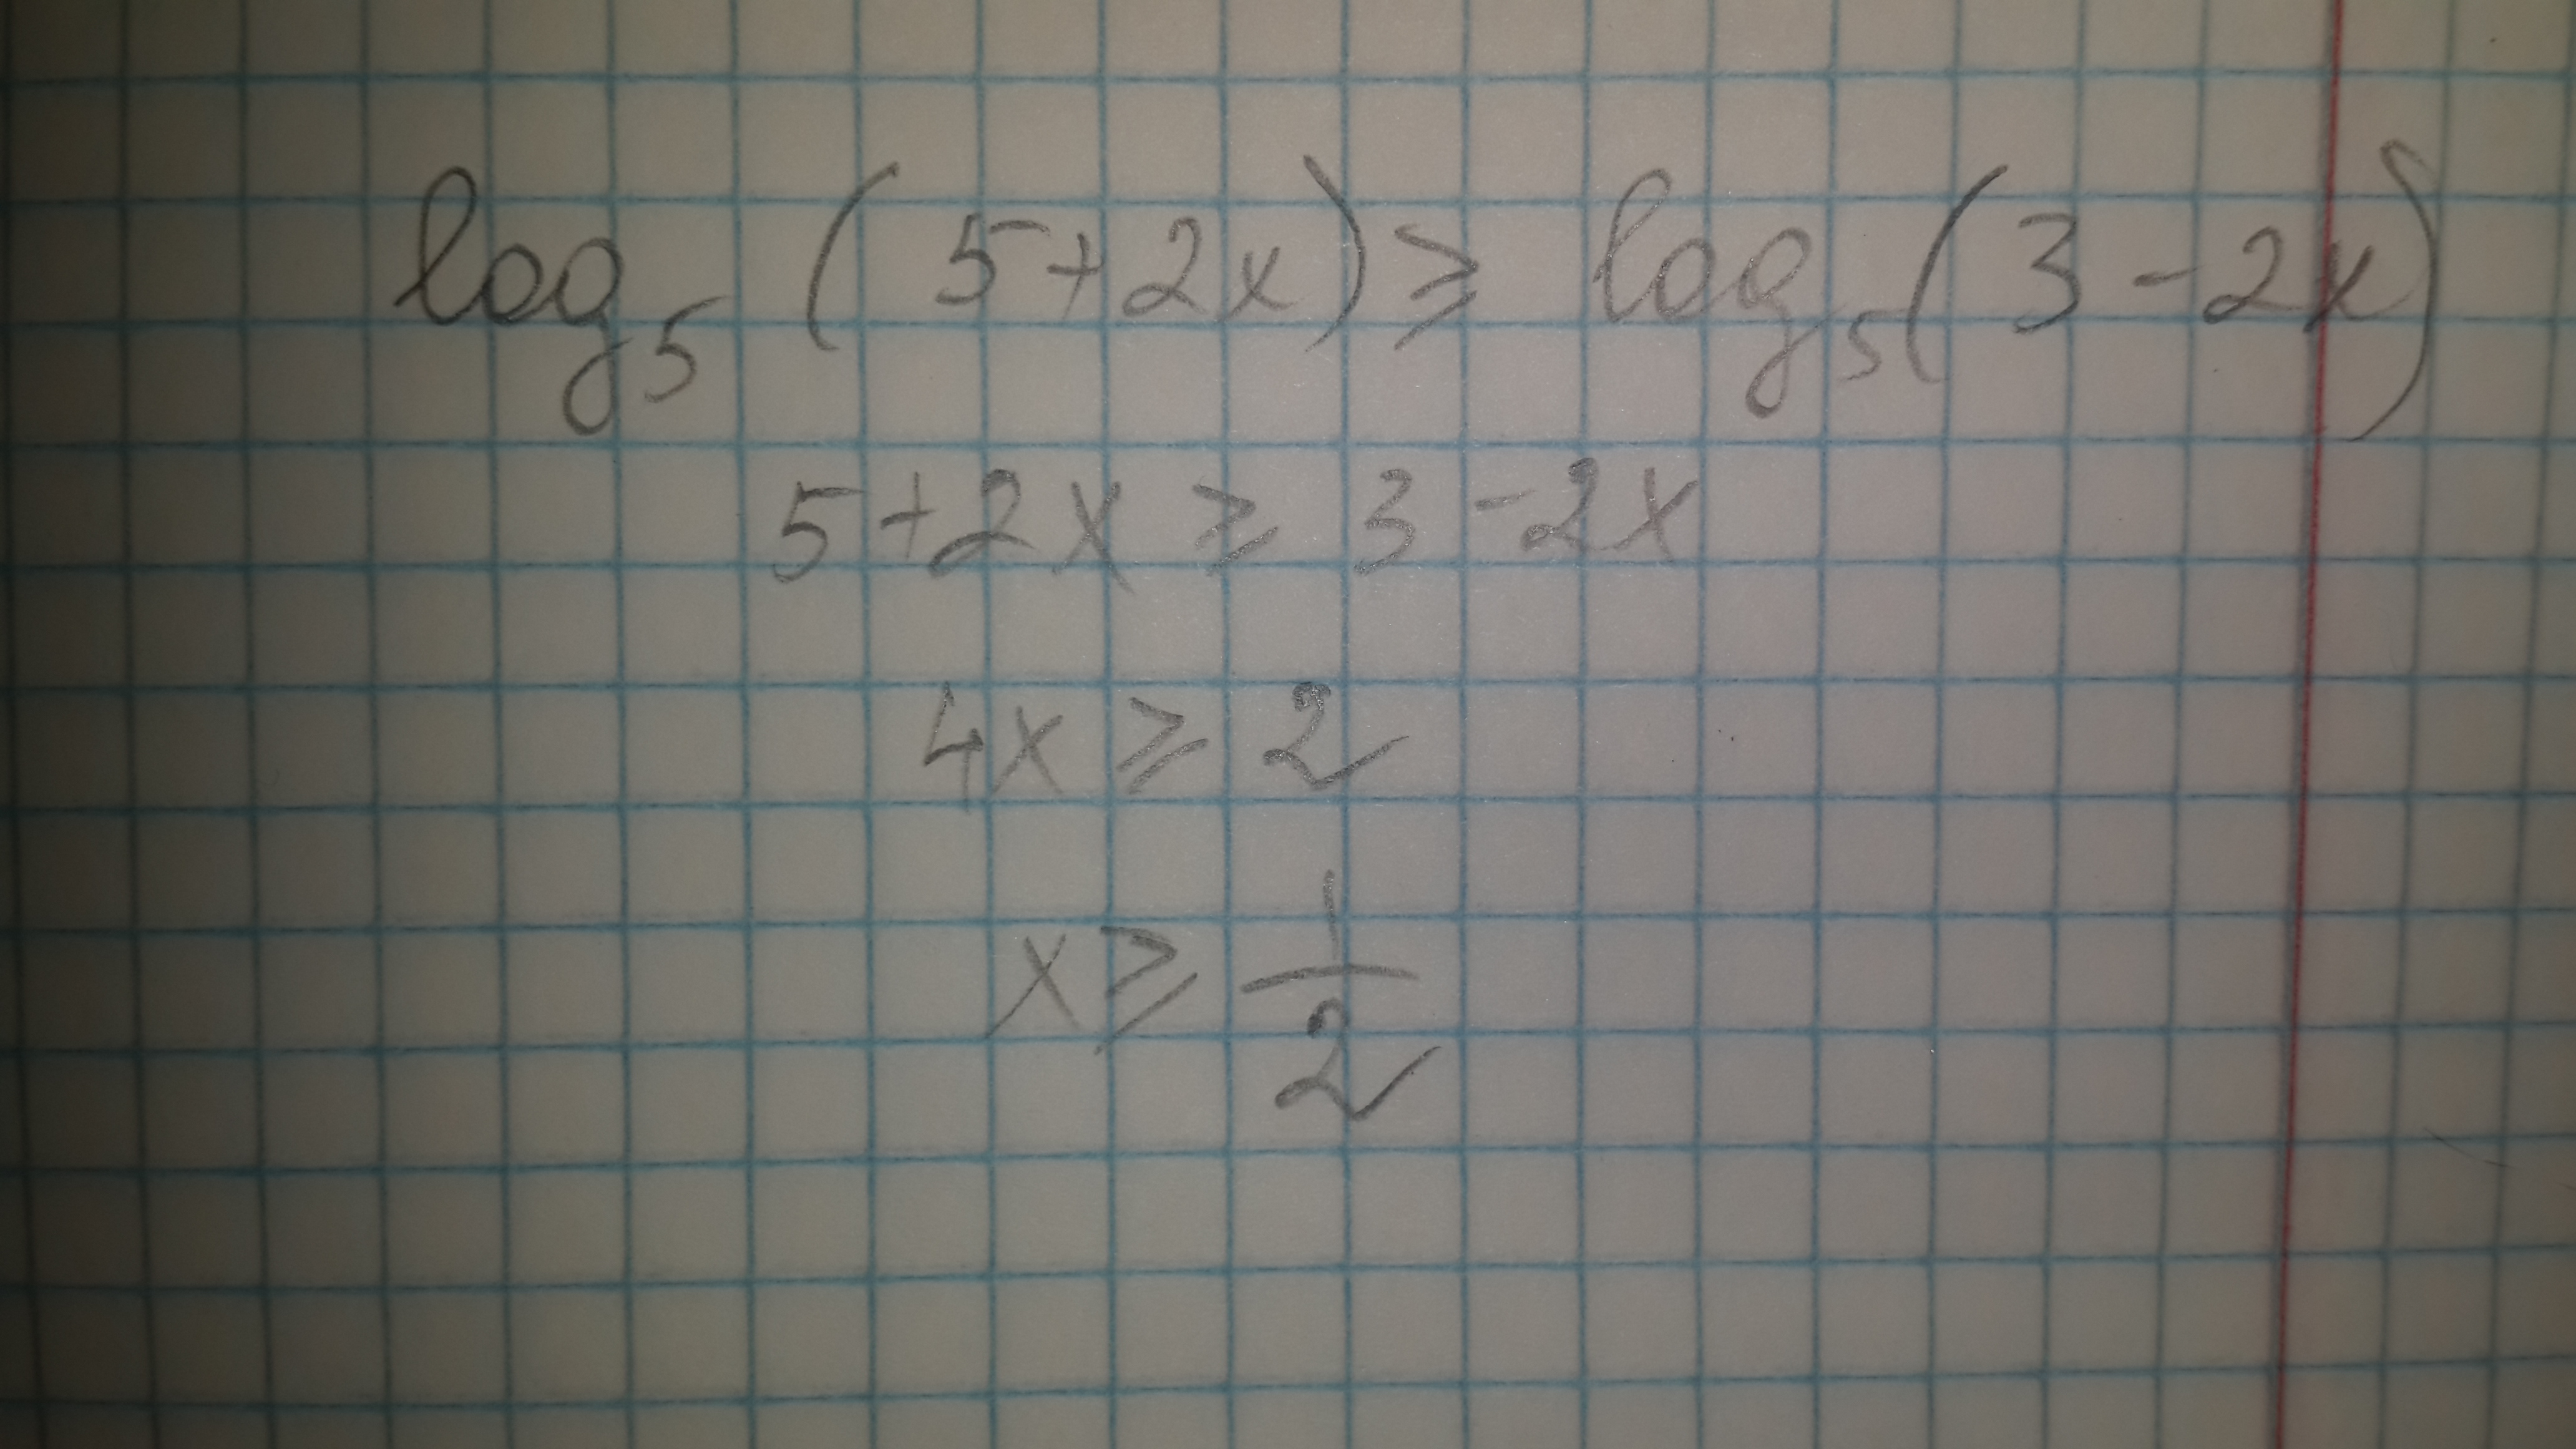 log₅ (5+2x) ≥ log₅(3-2x)
5+2x ≥ 3-2x
4x ≥ 2
x ≥ 1/2